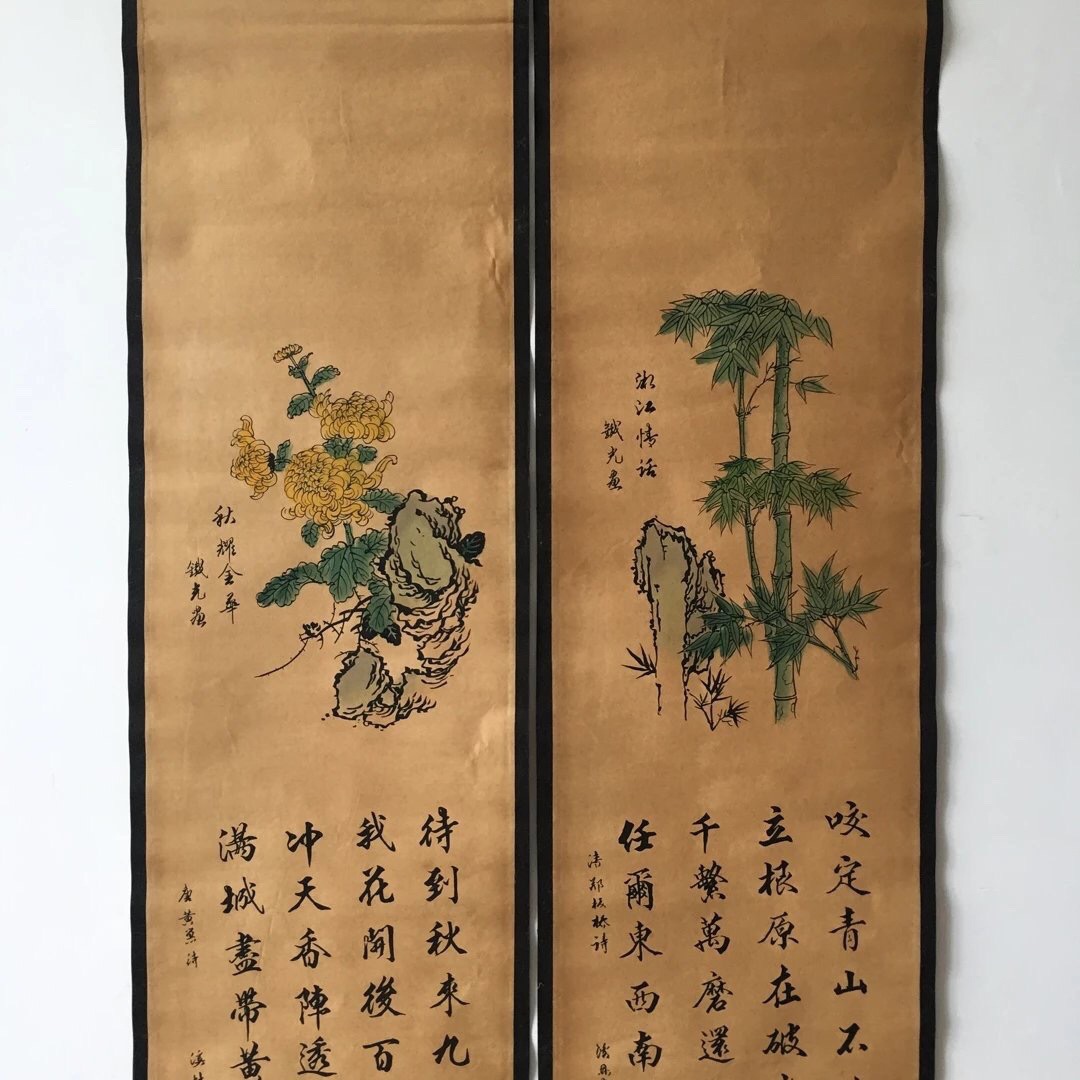 湘江情话
鐵光畫
咬定青山不
立根原在破
千繫萬磨還
任爾東西南
清鄭板橋詩
秋耀金華
鐵光畫
待到秋來九
我花開後百
冲天香陣透
满城盡帶黄
唐黄巢诗